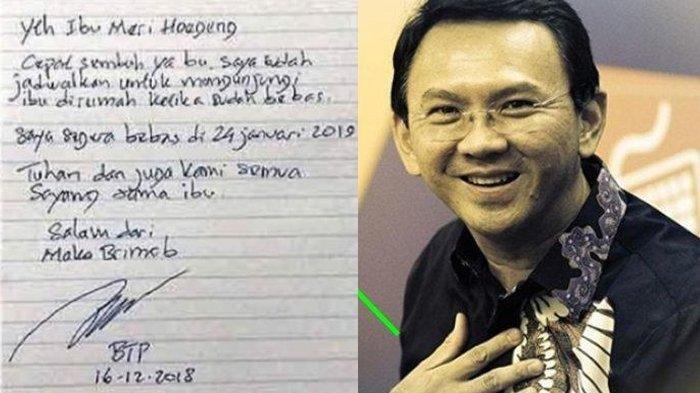 Yth Ibu Meri Hoegeng
Cepat sembuh ya bu, saya sudah
jadwalkan untuk mengunjungi
ibu dirumah ketika sudah bebas.
Saya segera bebas di 24 januari 2019
Tuhan dan juga kami semua
Sayang sama ibu
Salam dari
Mako Brimob
BTP
16-12-2018